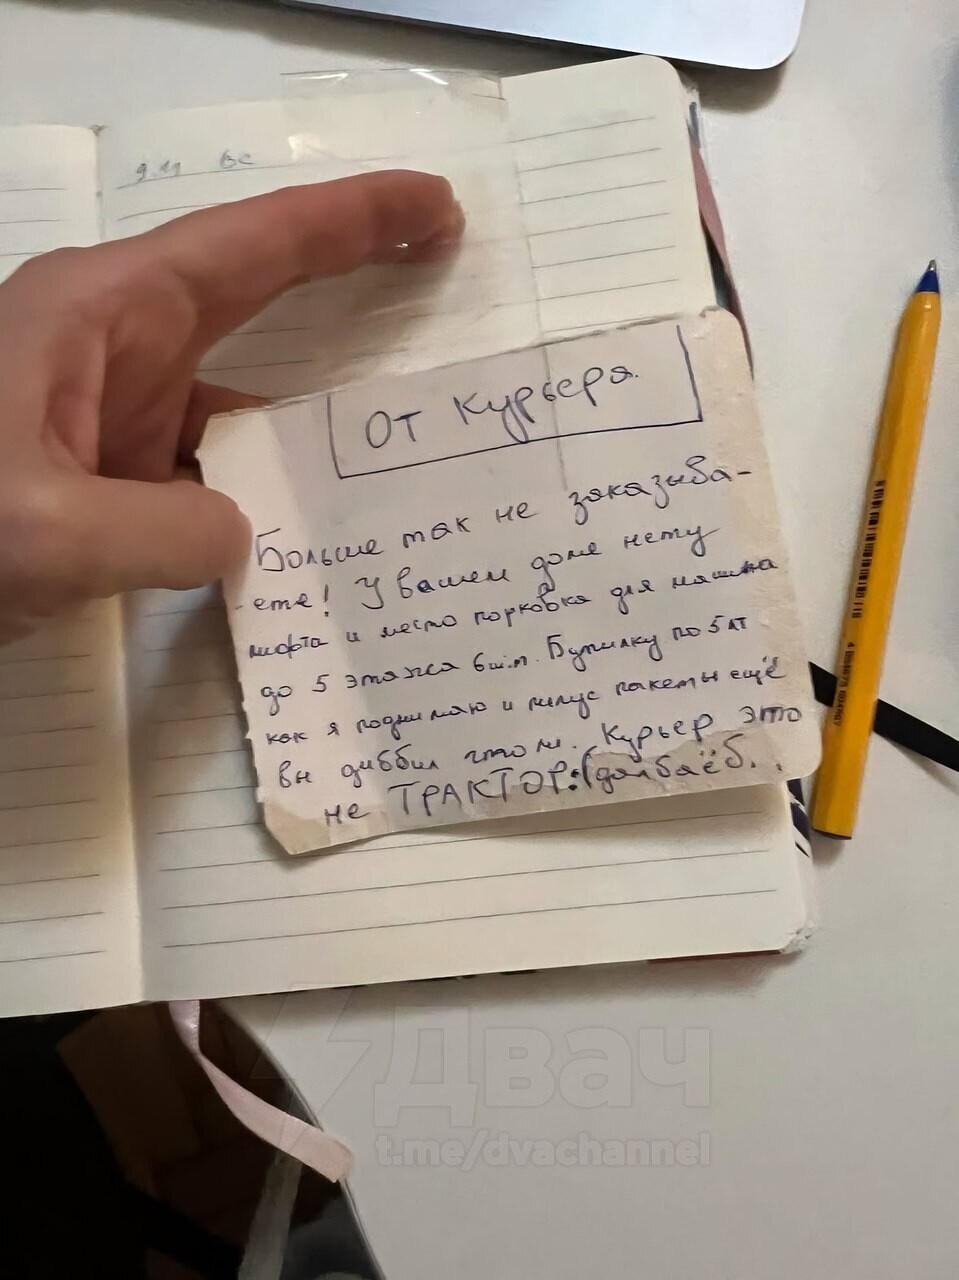 9.11 вс
От Курьера.
Больше так не заказыва-
-ете! У вашем доме нету
лифта и место порковка для машина
до 5 этажа 6шт. Бутилку по 5 лт
как я поднимаю и плюс пакеты ещё
вн диббил чтоли. Курьер это
не ТРАКТОР:( далбаёб..
Двач
t.me/dvachannel